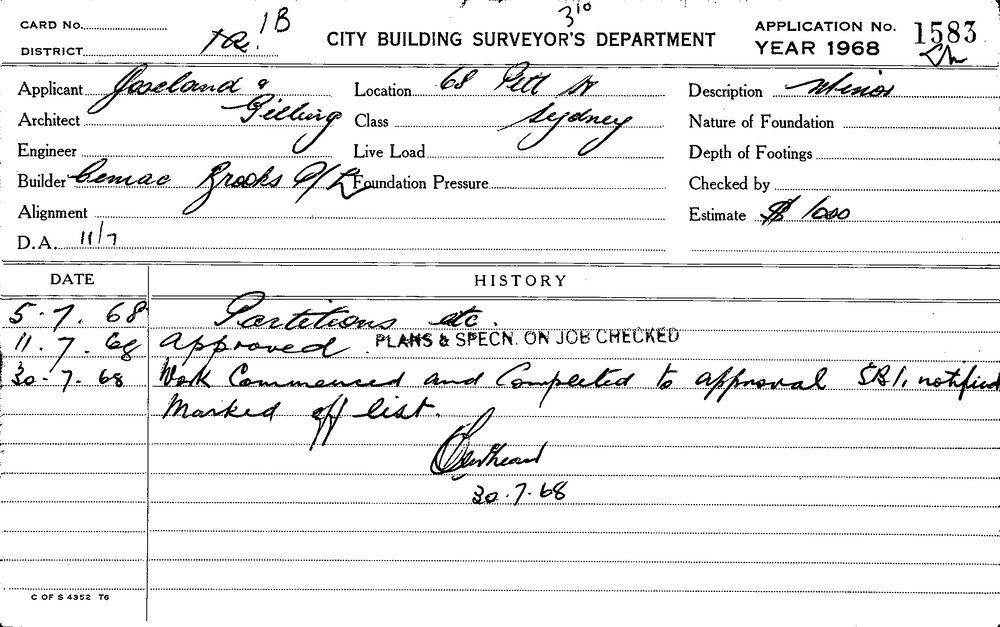 CARD No.
1B
3¹⁰
APPLICATION No. 1583
DISTRICT
CITY BUILDING SURVEYOR'S DEPARTMENT
YEAR 1968
Applicant Joseland &
Location 68 Pitt St
Description Minor
Architect Gilling
Class Sydney
Nature of Foundation
Engineer
Live Load
Depth of Footings
Builder Cemac Brooks P/L
Foundation Pressure
Checked by
Alignment
Estimate $ 1000
D.A. 11/7
DATE HISTORY
5.7.68 Partitions etc.
11.7.68 approved PLANS & SPECN. ON JOB CHECKED
30.7.68 Work Commenced and Completed to approval SBI, notified
Marked off list.
30.7.68
C OF S 4352 T6